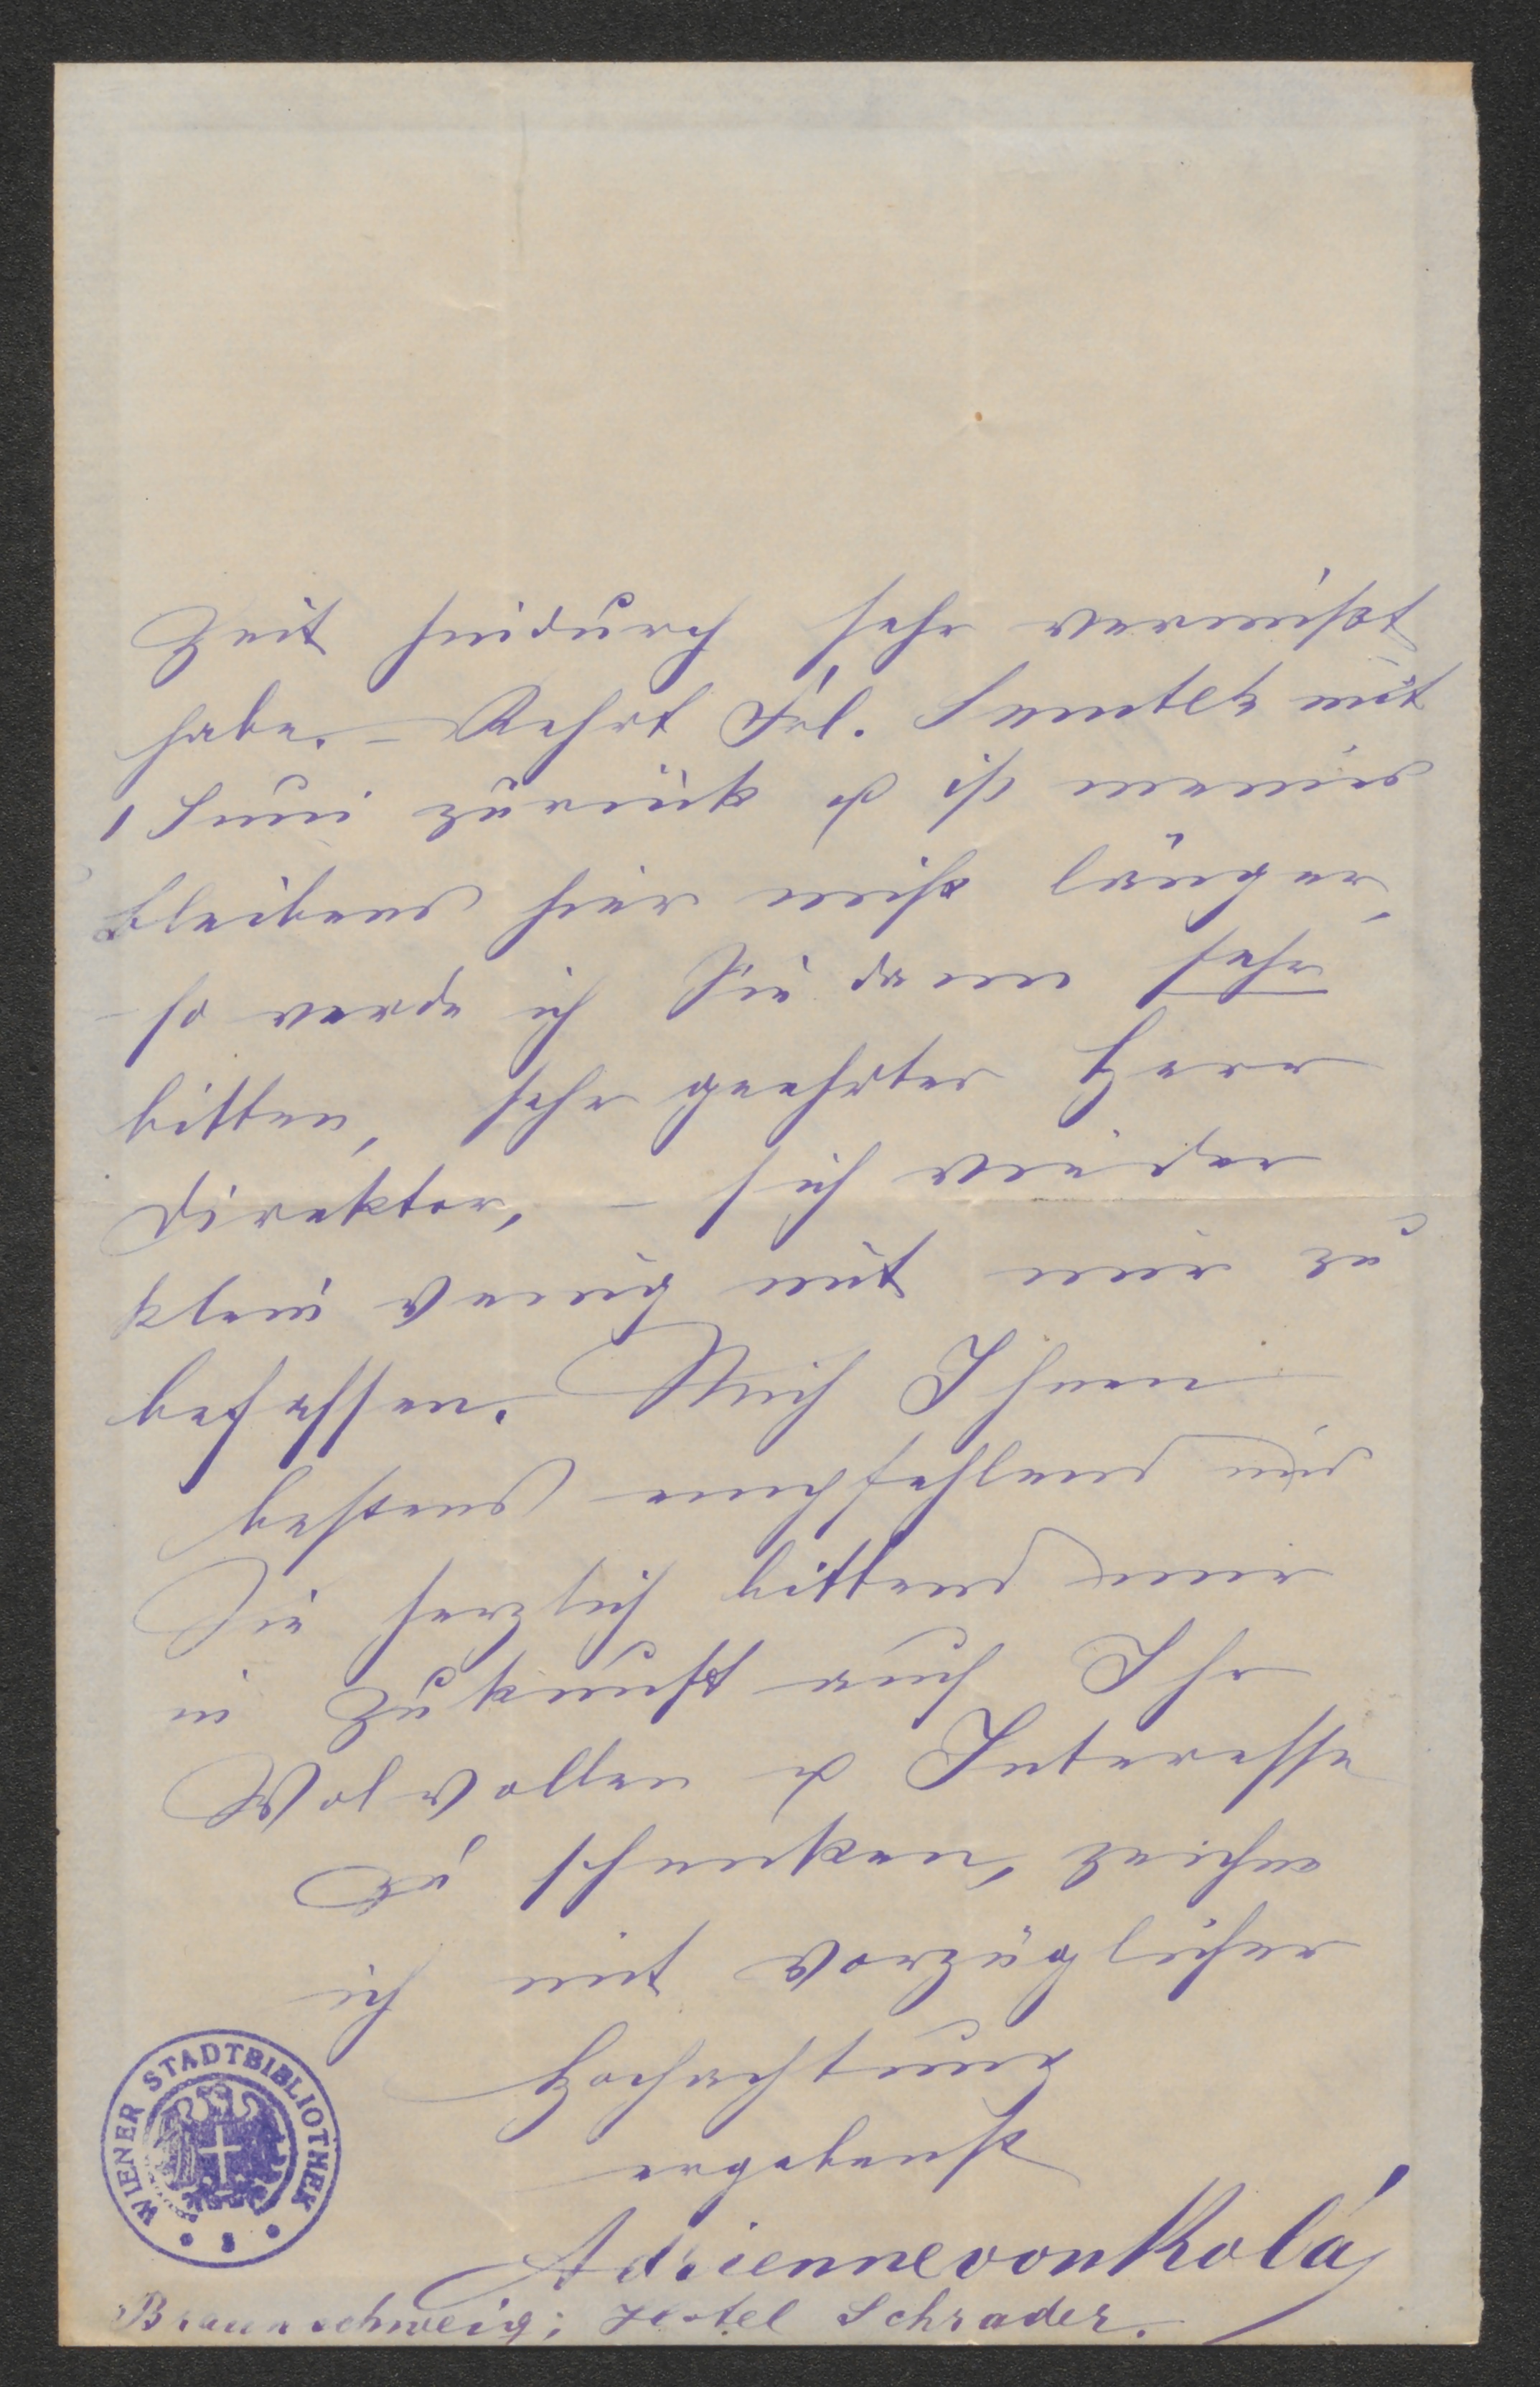 Zeit hindurch sehr vermißt
habe. – Kehrt Frl. mit
1 Juni zurück & ist meines
bleibens hier nicht länger,
– so werde ich Sie dann sehr
bitten, sehr geehrter Herr
Direktor, – sich wieder
klein wenig mit mir zu
befassen. Mich Ihnen
bestens empfehlend und
Sie herzlich bittend mir
in Zukunft auch Ihr
Wolwollen & Interesse
zu schenken, zeichne
ich mit vorzüglicher
Hochachtung
ergebenst
Adrienne von Kolá
Braunschweig; Hotel Schrader.
WIENER STADTBIBLIOTHEK